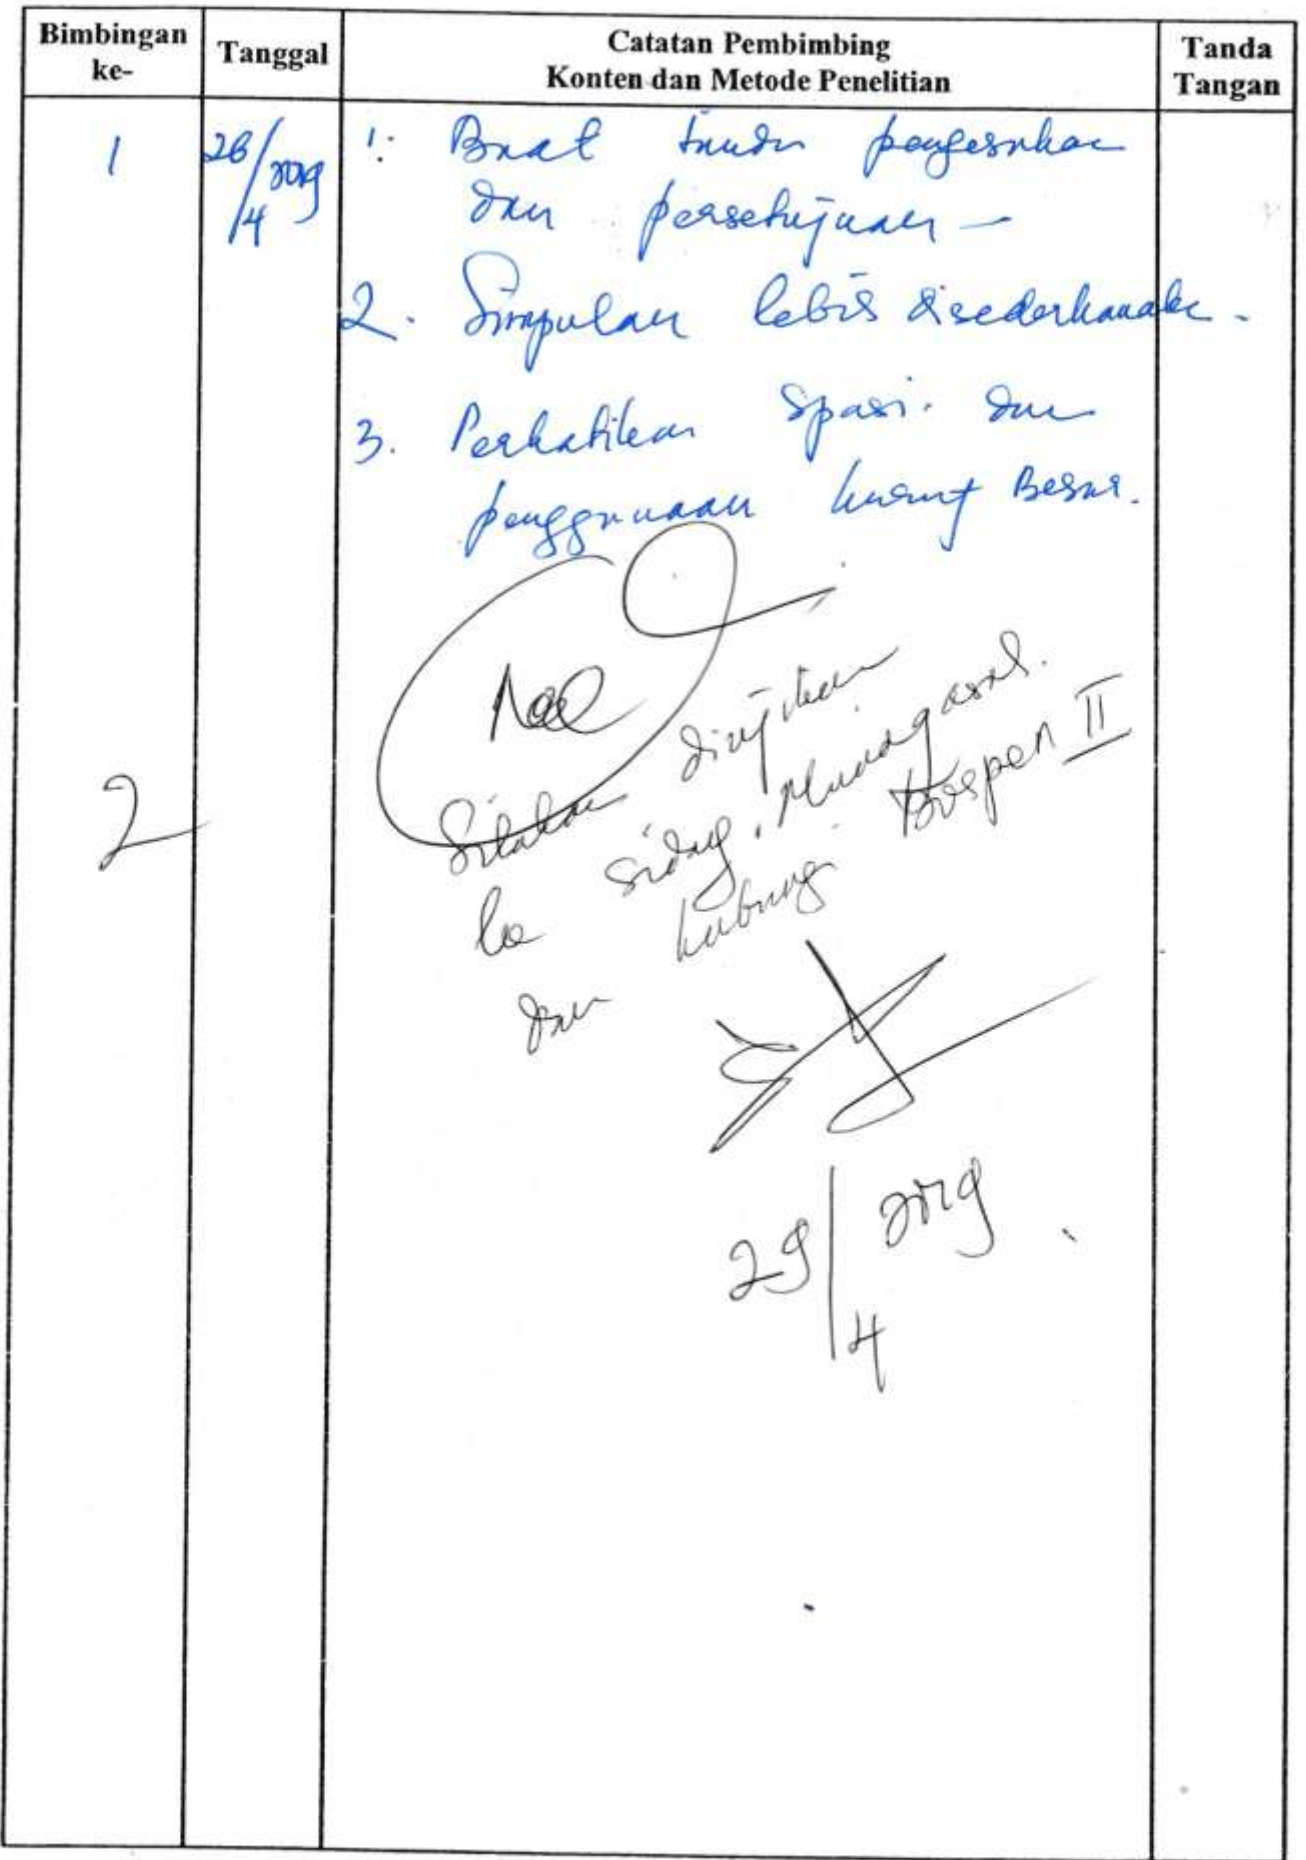 Bimbingan ke-
Tanggal
Catatan Pembimbing
Konten dan Metode Penelitian
Tanda Tangan
1
26/4 2019
1. Buat tanda pengesahan
dan persetujuan -
2. Simpulan lebih disederhanakan.
3. Perhatikan spasi dan
penggunaan huruf Besar.
2
Acc
Silakan diujikan
ke sidang Munaqasah.
dan hubungi Dospem II
29/4 2019